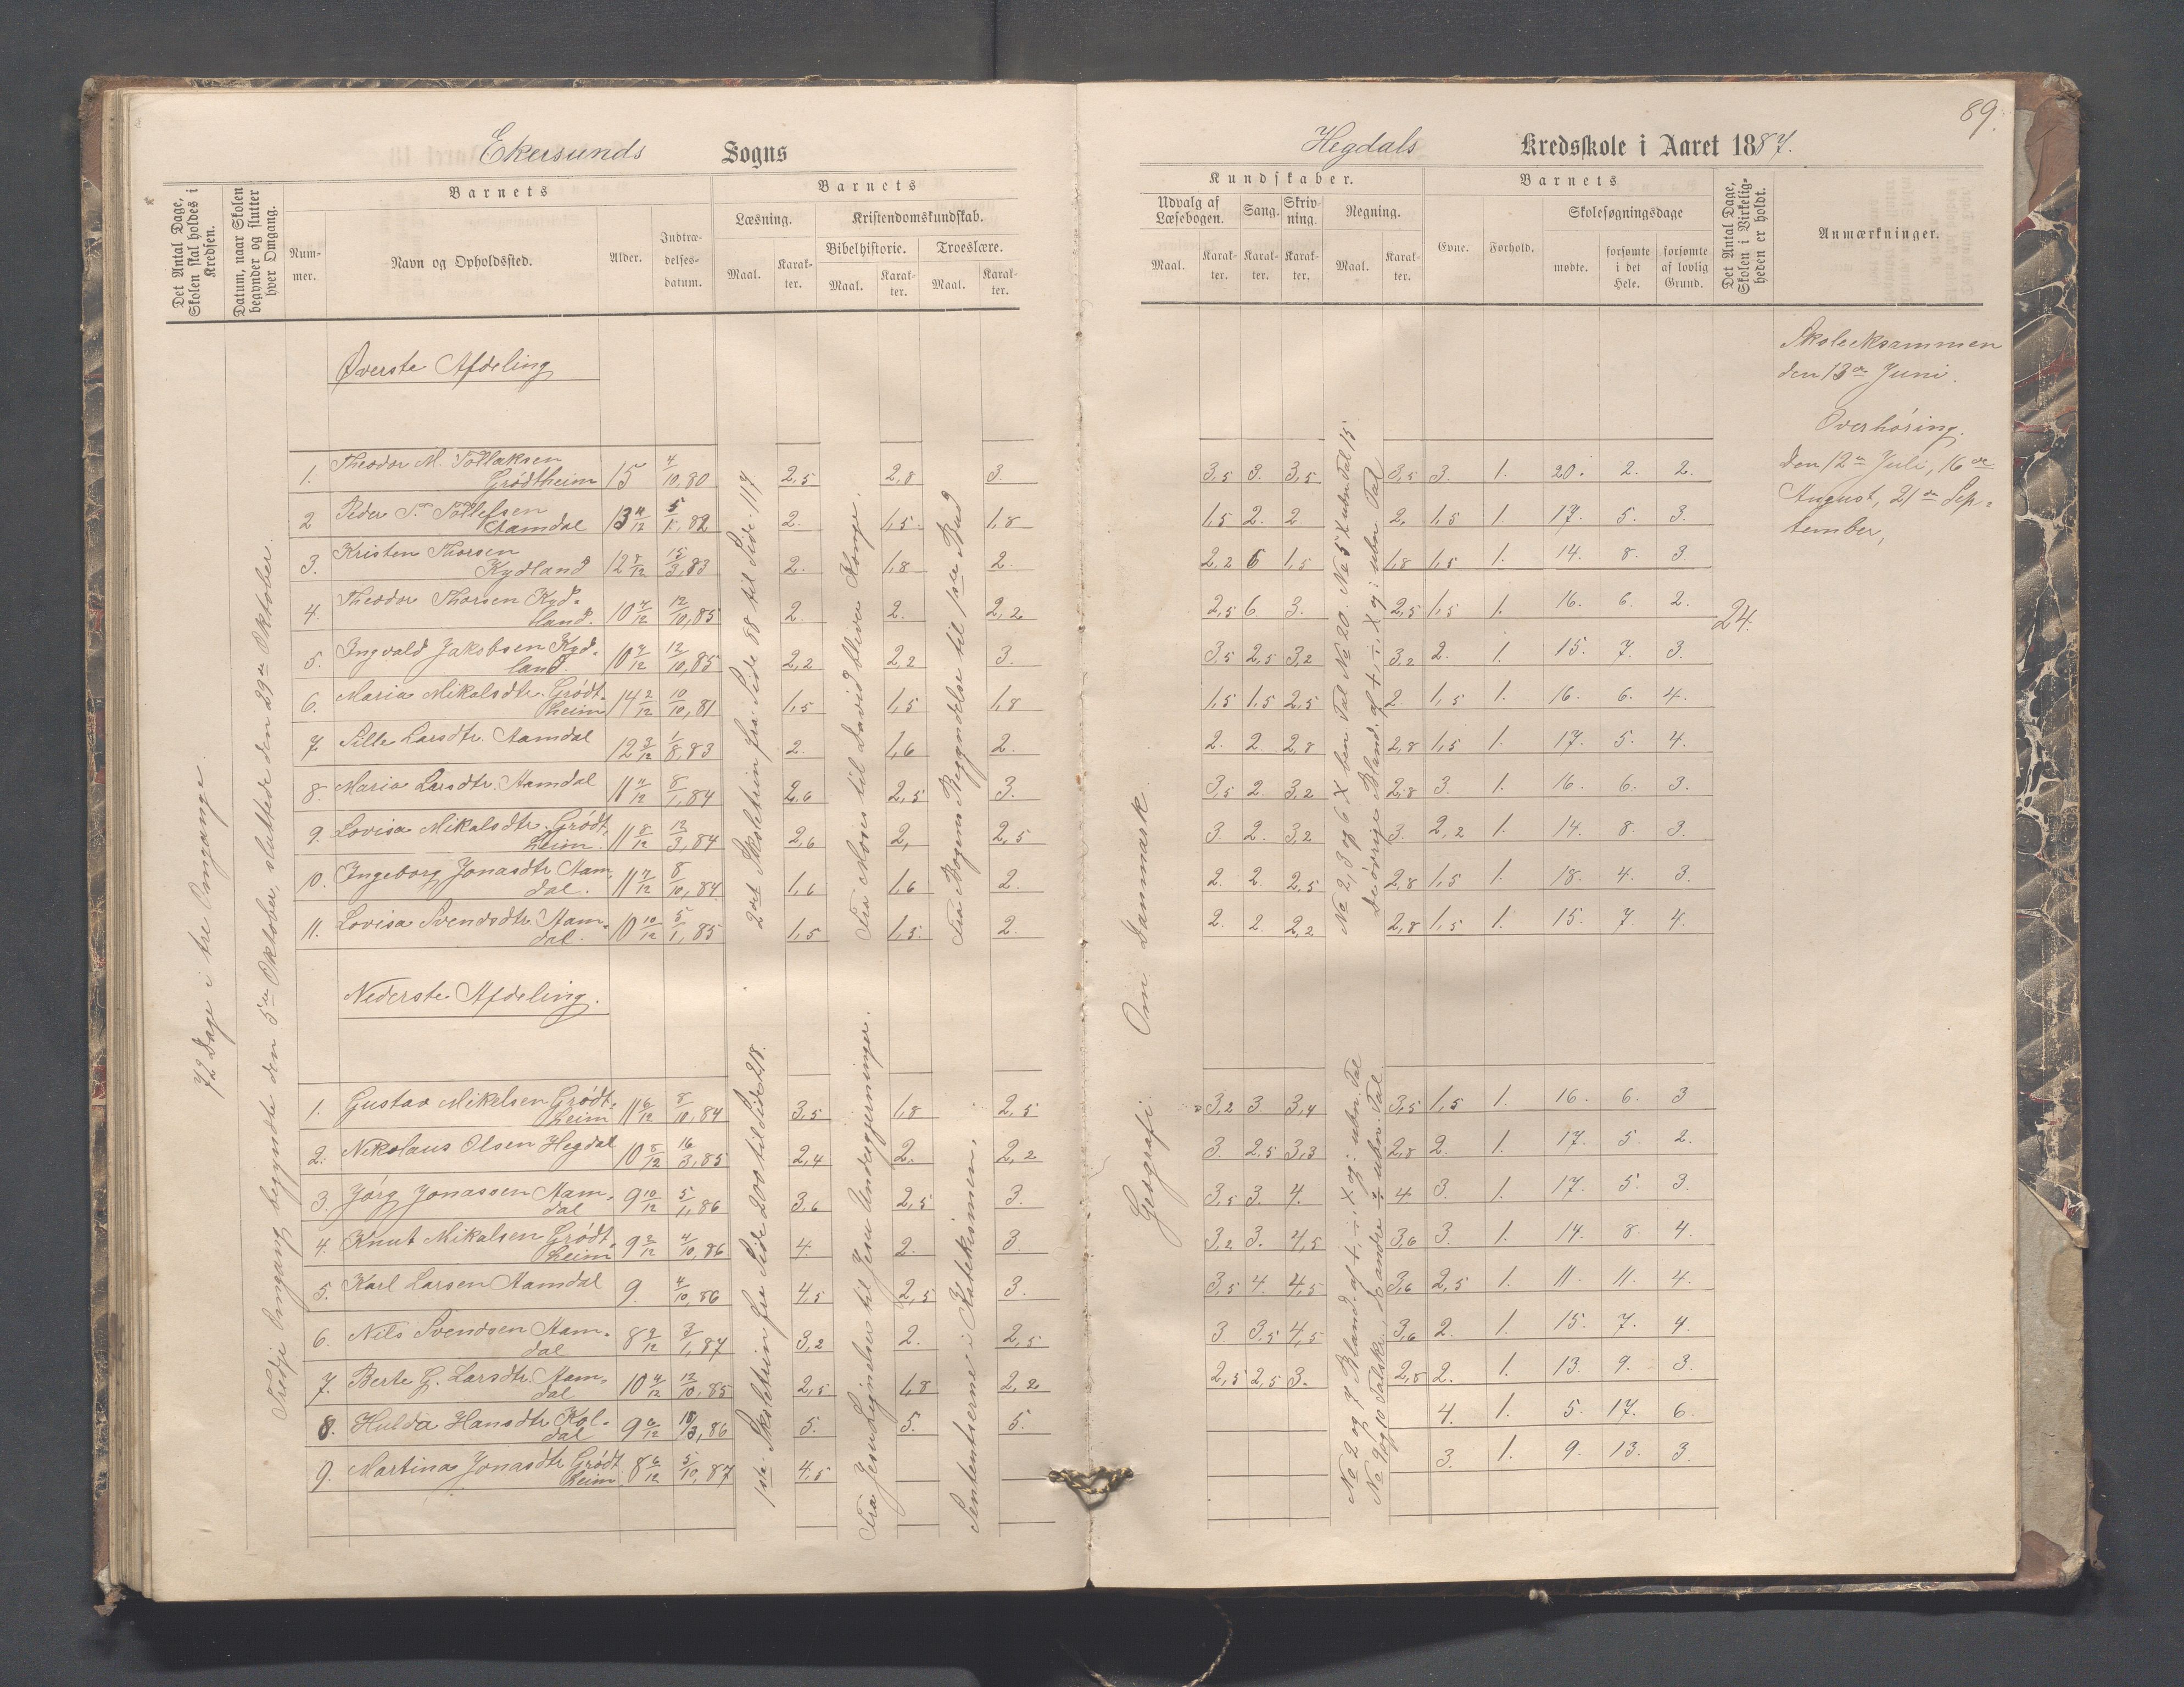 89.
Ekersunds Sogns
Hegdals Kredsskole i Aaret 1887.
Det Antal Dage, Skolen skal holdes i Kredsen.
Datum, naar Skolen begynder og slutter hver Omgang.
Barnets
Nummer.
Navn og Opholdssted.
Alder.
Indtrædelsesdatum.
Barnets
Læsning.
Maal. Karakter.
Kristendomskundskab.
Bibelhistorie. Troeslære.
Maal. Karakter. Maal. Karakter.
Kundskaber.
Udvalg af Læsebogen. Sang. Skrivning. Regning.
Maal. Karakter. Karakter. Karakter. Maal. Karakter.
Barnets
Evne. Forhold.
Skolesøgningsdage
mødte. forsømte i det Hele. forsømte af lovlig Grund.
Det Antal Dage, Skolen i Virkeligheden er holdt.
Anmærkninger.
72 Dage i tre Omgange.
Tredje Omgang begyndte den 5te Oktober, sluttede den 29de Oktober.
Øverste Afdeling
1. Theodor M. Tollaksen Grødtheim 15 4/10,80 2,5 2,8 3. 3,5 3. 3,5 3,5 3. 1. 20. 2. 2.
2 Peder T. Tollefsen Aamdal 13 4/12 5/1,82 2. 1,5. 1,8 1,5 2. 2. 2. 1,5 1. 17. 5. 3.
3. Kristen Thorsen Kydland 12 8/12 15/3,83 2. 1,8 2. 2,2 6 1,5 1,8 1,5 1. 14. 8. 3.
4. Theodor Thorsen Kydland. 10 4/12 12/10,85 2. 2. 2,2 2,5 6 3. 2,5 1,5 1. 16. 6. 2.
5. Ingvald Jakobsen Kydland. 10 2/12 12/10,85 2,2 2,2 3. 3,5 2,5 3,2 3,2 2. 1. 15. 7. 3.
6. Maria Mikalsdtr. Grødtheim 14 2/12 10/10,81 1,5 1,5 1,8 1,5 1,5 2,5 2 1,5 1. 16. 6. 4.
7 Sille Larsdtr. Aamdal 12 3/12 1/8,83 2. 1,6 2. 2. 2. 2,8 2,8 1,5 1. 17. 5. 4.
8. Maria Larsdtr. Aamdal 11 4/12 8/1,84 2,6 2,5 3. 3,5 2. 3,2 2,8 3. 1. 16. 6. 3.
9. Lovisa Mikalsdtr. Grødtheim. 11 8/12 12/3,84 2,6 2, 2,5 3. 2. 3,2 3. 2,2 1. 14. 8. 3.
10. Ingeborg Jonasdtr. Aamdal. 11 4/12 8/10,84 1,6 1,6 2. 2. 2. 2,5 2,8 1,5 1. 18. 4. 3.
11. Lovisa Svendsdtr. Aamdal. 10 10/12 5/1,85 1,5 1,5. 2. 2. 2. 2,2 2,8 1,5 1. 15. 7. 4.
2det Skoletrin fra Side 88 til Side 117
Fra Moses til David bliver Konge.
Fra Bogens Begyndelse til 1ste Bud
No 2, 3 og 6 X ben. Tal No 20. No 5 X ubn Tal 15
De øvrige Bland. af +, ÷, X og : ubn. Tal
24.
Skoleeksammen
den 13de Juni.
Overhøring.
den 12te Juli, 16de
August, 21de Sep=
tember,
Nederste Afdeling.
1. Gustav Mikelsen Grødtheim 11 6/12 8/10,84 3,5 1,8 2,5 3,2 3. 3,4 3,5 1,5 1. 16. 6. 3
2. Nikolaus Olsen Hegdal 10 8/12 16/3,85 2,4 2. 2,2 3. 2,5 3,3 2,8 2. 1. 17. 5. 2.
3. Jørg Jonassen Aamdal 9 10/12 5/1,86 3,6 2,5 3. 3,5 3. 4. 4 3. 1. 17. 5. 3.
4. Knut Mikalsen Grødtheim 9 2/12 4/10,86 4. 2. 3. 3,2 3. 4,5 3,6 3. 1. 14. 8. 4.
5. Karl Larsen Aamdal 9. 4/10,86 4,5 2,5 3. 3,5 4. 4,5 3,6 2,5 1. 11. 11. 4.
6. Nils Svendsen Aamdal 8 9/12 7/1,87 3,2 2. 2,5 3 3,5 4,5 3,6 2. 1. 15. 7. 4.
7. Berte G. Larsdtr. Aamdal 10 4/12 12/10,85 2,5 1,8 2,2 2,5 2,5 3. 2,8 2. 1. 13. 9. 3.
8. Hulda Hansdtr. Koldal 9 6/12 15/3,86 5. 5. 5. 4. 1. 5. 17. 6.
9. Martina Jonasdtr. Grødtheim 8 6/12 5/10,87 4,5 3. 1. 9. 13. 3.
1ste Skoletrin fra Side 200 til Side 218.
Fra Jesu Lignelser til Jesu Undergjerninger.
Sententserne i Katekismen.
Geografi. Om Danmark.
No 2 og 7 Bland. af +, ÷, X og : ubn. Tal
No 9 og 10 Talskr., de andre ÷ ubn. Tal